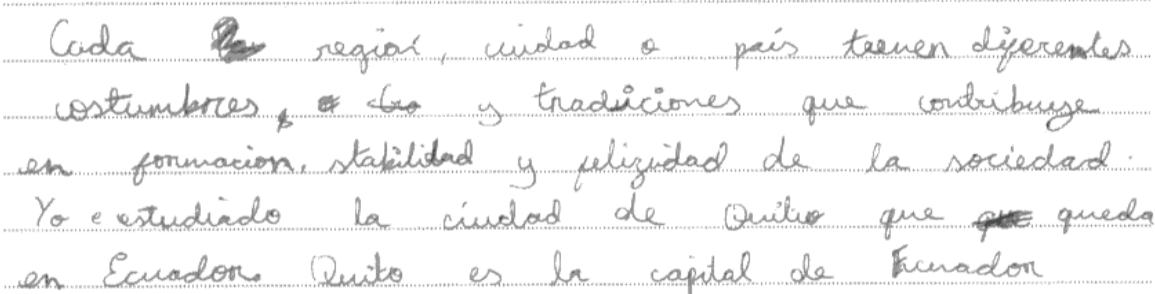 Cada región, ciudad o país tienen diferentes
costumbres, y tradiciones que contribuye
en formacion, stabilidad y felizidad de la sociedad.
Yo e estudiado la ciudad de Quito que queda
en Ecuador. Quito es la capital de Ecuador